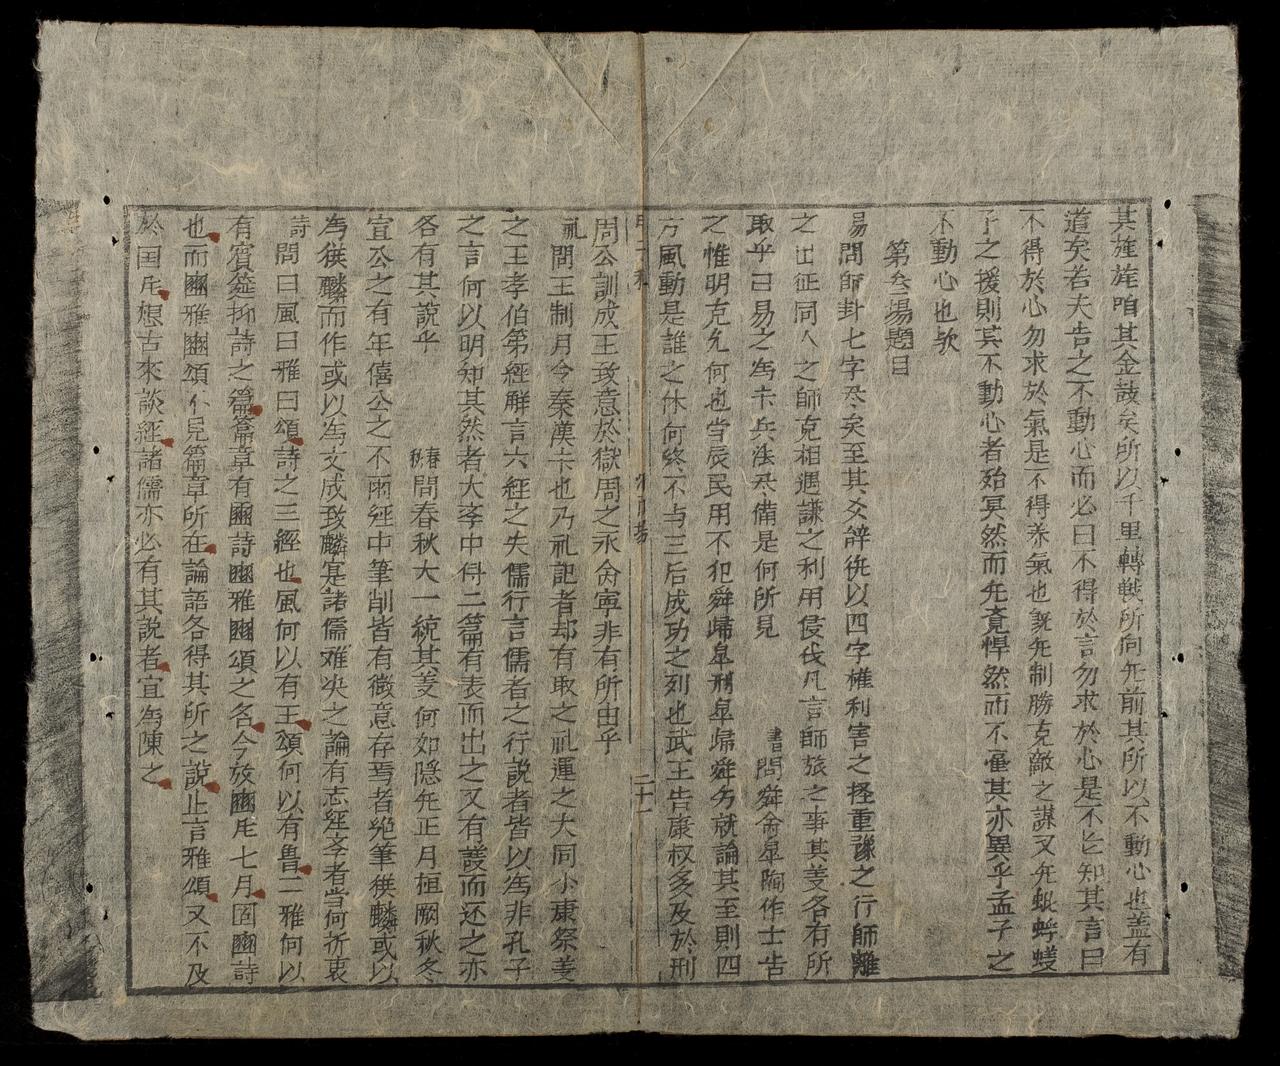 其旌旄咱其金鼓矣所以千里轉戰所向无前其所以不動心也盖有
道矣若夫告之不動心而必曰不得於言勿求於心是不必知其言曰
不得於心勿求於氣是不得养氣也旣无制勝克敵之謀又无蚍蜉蟻
子之援則其不動心者殆冥然而无竟悍然而不亟其亦異乎孟子之
不動心也欤
第叁場題目
易問師卦七字尽矣至其爻辞往以四字権利害之輕重豫之行師離
之出征同人之師克相遇謙之利用侵伐凡言師旅之事其义各有所
取乎曰易之為卞兵法尽备是何所見
書問舜命皐陶作士告
之惟明克允何也当辰民用不犯舜歸皐刑皐歸舜旁就論其至則四
方風動是誰之休何終不与三后成功之列也武王告康叔多及於刑
周公訓成王致意於獄周之永命寧非有所由乎
二十一
礼問王制月令秦漢卞也乃礼記者却有取之礼運之大同小康祭义
之王孝伯第經解言六經之失儒行言儒者之行説者皆以為非孔子
之言何以明知其然者大斈中得二篇有表而出之又有護而还之亦
各有其說乎
春秋問春秋大一統其义何如隠无正月桓厥秋冬
宣公之有年僖公之不雨经中筆削皆有微意存焉者绝筆獲麟或以
為獲麟而作或以為文成致麟寔諸儒难决之論有志經斈者当何折衷
詩問曰風曰雅曰頌詩之三經也風何以有王頌何以有魯二雅何以
有賓筵抑詩之篇篇章有豳詩豳雅豳頌之名今放豳风七月固豳詩
也而豳雅豳頌不見篇章所在論語各得其所之說止言雅頌又不及
於国风想古來談經諸儒亦必有其説者宜為陳之